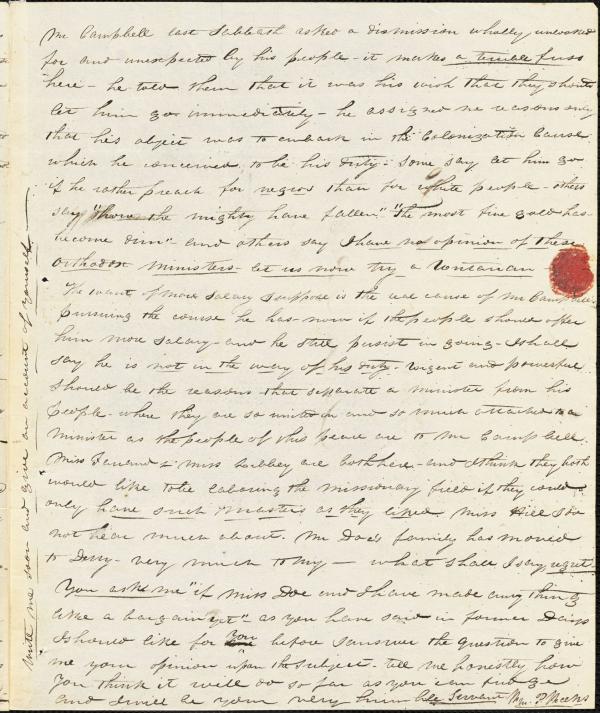 Mr Campbell last Sabbath asked a dismission wholly unlooked
for and unexpected by his people - it makes a terrible fuss
here - he told them that it was his wish that they should
let him go immediately - he assigned no reasons only
that his object was to embark in the Colonization Cause
which he conceived to be his duty - some say let him go
if he rather preach for negros than for white people - others
say "how the mighty have fallen" "The most fine gold has
become dim" and others say I have no opinion of these
Orthodox ministers - let us now try a Unitarian
The want of more salary I suppose is the real cause of Mr Campbells
pursuing the course he has - now if the people should offer
him more salary - and he still persist in going - I shall
say he is not in the way of his duty - urgent and powerful
should be the reasons that separate a minister from his
people - where they are so united in and so much attached to a
minister as the people of this place are to Mr Campbell.
Miss Farrand & Miss Libbey are both here - and I think they both
would like to be laboring the missionary field if they could
only have such masters as they liked Miss Hill I do
not hear much about. Mr Does family has moved
to Derry - very much to my - what shall I say regret.
You ask me "if Miss Doe and I have made any thing
like a bargain yet" as you have said in former Days
I should like for you before I answer the question to give
me your opinion upon the subject - tell me honestly how
you think it will do so far as you can judge
and I will be your very humble Servant Wm.
Write me soon and give an account of yourself